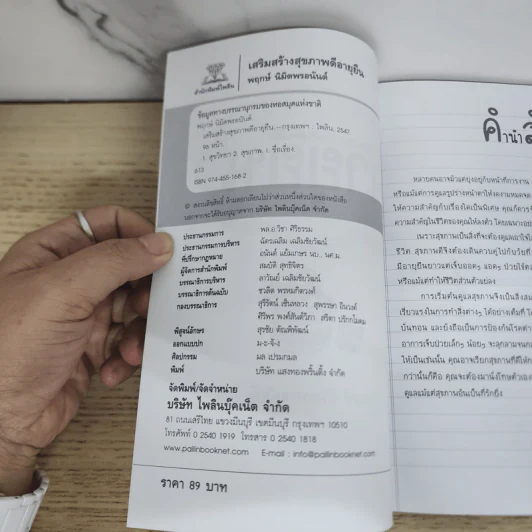 สำนักพิมพ์ไพลิน
เสริมสร้างสุขภาพดีอายุยืน
พฤกษ์ นิมิตพรอนันต์
ข้อมูลทางบรรณานุกรมของหอสมุดแห่งชาติ
พฤกษ์ นิมิตพรอนันต์
เสริมสร้างสุขภาพดีอายุยืน.--กรุงเทพฯ : ไพลิน, 2547.
96 หน้า.
1. สุขวิทยา 2. สุขภาพ. I. ชื่อเรื่อง.
613
ISBN 974-455-168-2
© สงวนลิขสิทธิ์ ห้ามลอกเลียนไม่ว่าส่วนหนึ่งส่วนใดของหนังสือ
นอกจากจะได้รับอนุญาตจาก บริษัท ไพลินบุ๊คเน็ต จำกัด
ประธานกรรมการ พล.อ.วิชา ศิริธรรม
ประธานกรรมการบริหาร ฉัตรเฉลิม เฉลิมชัยวัฒน์
ที่ปรึกษากฎหมาย อนันต์ แย้มเกษร นบ., นศ.ม.
ผู้จัดการสำนักพิมพ์ สมบัติ สุทธิจิตร
บรรณาธิการบริหาร ลาวัณย์ เฉลิมชัยวัฒน์
บรรณาธิการต้นฉบับ ชวลิต พรหมกีตวงศ์
กองบรรณาธิการ สุรีรัตน์ เซ็นหลวง สุพรรษา อินวงค์
ศิริพร พงศ์สันติวิภา สริตา ปริกกไมตม
พิสูจน์อักษร สุรชัย ตัณพิพัฒน์
ออกแบบปก ม-ธ-จ๊-ง
ศิลปกรรม มล เปรมกมล
พิมพ์ บริษัท แสงทองพริ้นติ้ง จำกัด
จัดพิมพ์/จัดจำหน่าย
บริษัท ไพลินบุ๊คเน็ต จำกัด
81 ถนนเสรีไทย แขวงมีนบุรี เขตมีนบุรี กรุงเทพฯ 10510
โทรศัพท์ 0 2540 1919 โทรสาร 0 2540 1818
www.pailinbooknet.com E-mail : info@pailinbooknet.com
ราคา 89 บาท
คำนำ
หลายคนอาจมัวแต่ยุ่งอยู่กับหน้าที่การงาน
หรือแม้แต่การดูแลรูปร่างหน้าตาให้งดงามหมดจด
ให้ความสำคัญกับเรื่องใดเป็นพิเศษ คุณก็ควร
ความสำคัญในชีวิตของคุณให้ลงตัว โดยเฉพาะอย่าง
เพราะสุขภาพเป็นสิ่งที่จะต้องดูแลเอาใจใส่
ชีวิต สุขภาพดีจึงต้องเดินควบคู่ไปกับวัย
มีอายุยืนยาวแต่เจ็บออดๆ แอดๆ ช่วยใช้
หรือแม้แต่ทำให้ชีวิตส่วนตัวแย่ลง
การเริ่มต้นดูแลสุขภาพจึงเป็นสิ่ง
เรี่ยวแรงในการทำสิ่งต่างๆ ได้อย่างเต็มที่
บั่นทอน และยังถือเป็นการป้องกันโรค
อาการเจ็บป่วยเล็กๆ น้อยๆ จะลุกลาม
ให้เป็นเช่นนั้น คุณอาจเรียกสุขภาพที่ดีให้
กว่านั้นก็คือ คุณจะต้องมานั่งโทษตัวเอง
ดูแลแม้แต่สุขภาพอันเป็นที่รักยิ่ง